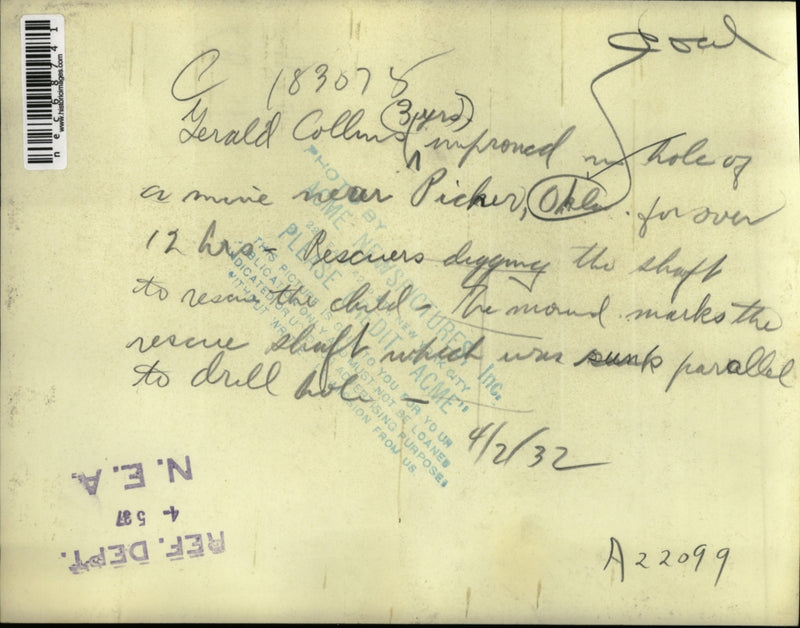 nec68741
www.historicimages.com
C 183078
(3 yrs)
Gerald Collins ^ improned in hole of
a mine near Picher, Okla. for over
12 hrs - Rescuers digging the shaft
to rescue the child - The mound marks the
rescue shaft which was sunk parallel
to drill hole -
4/2/32
PHOTO BY
ACME NEWSPICTURES, Inc.
NEW YORK CITY
PLEASE CREDIT "ACME"
THIS PICTURE IS TO YOU FOR YOUR
PUBLICATION ONLY MUST NOT BE LOANED
ADVERTISING PURPOSES
FROM US.
N.E.A.
4 5 37
REF. DEPT.
A22099